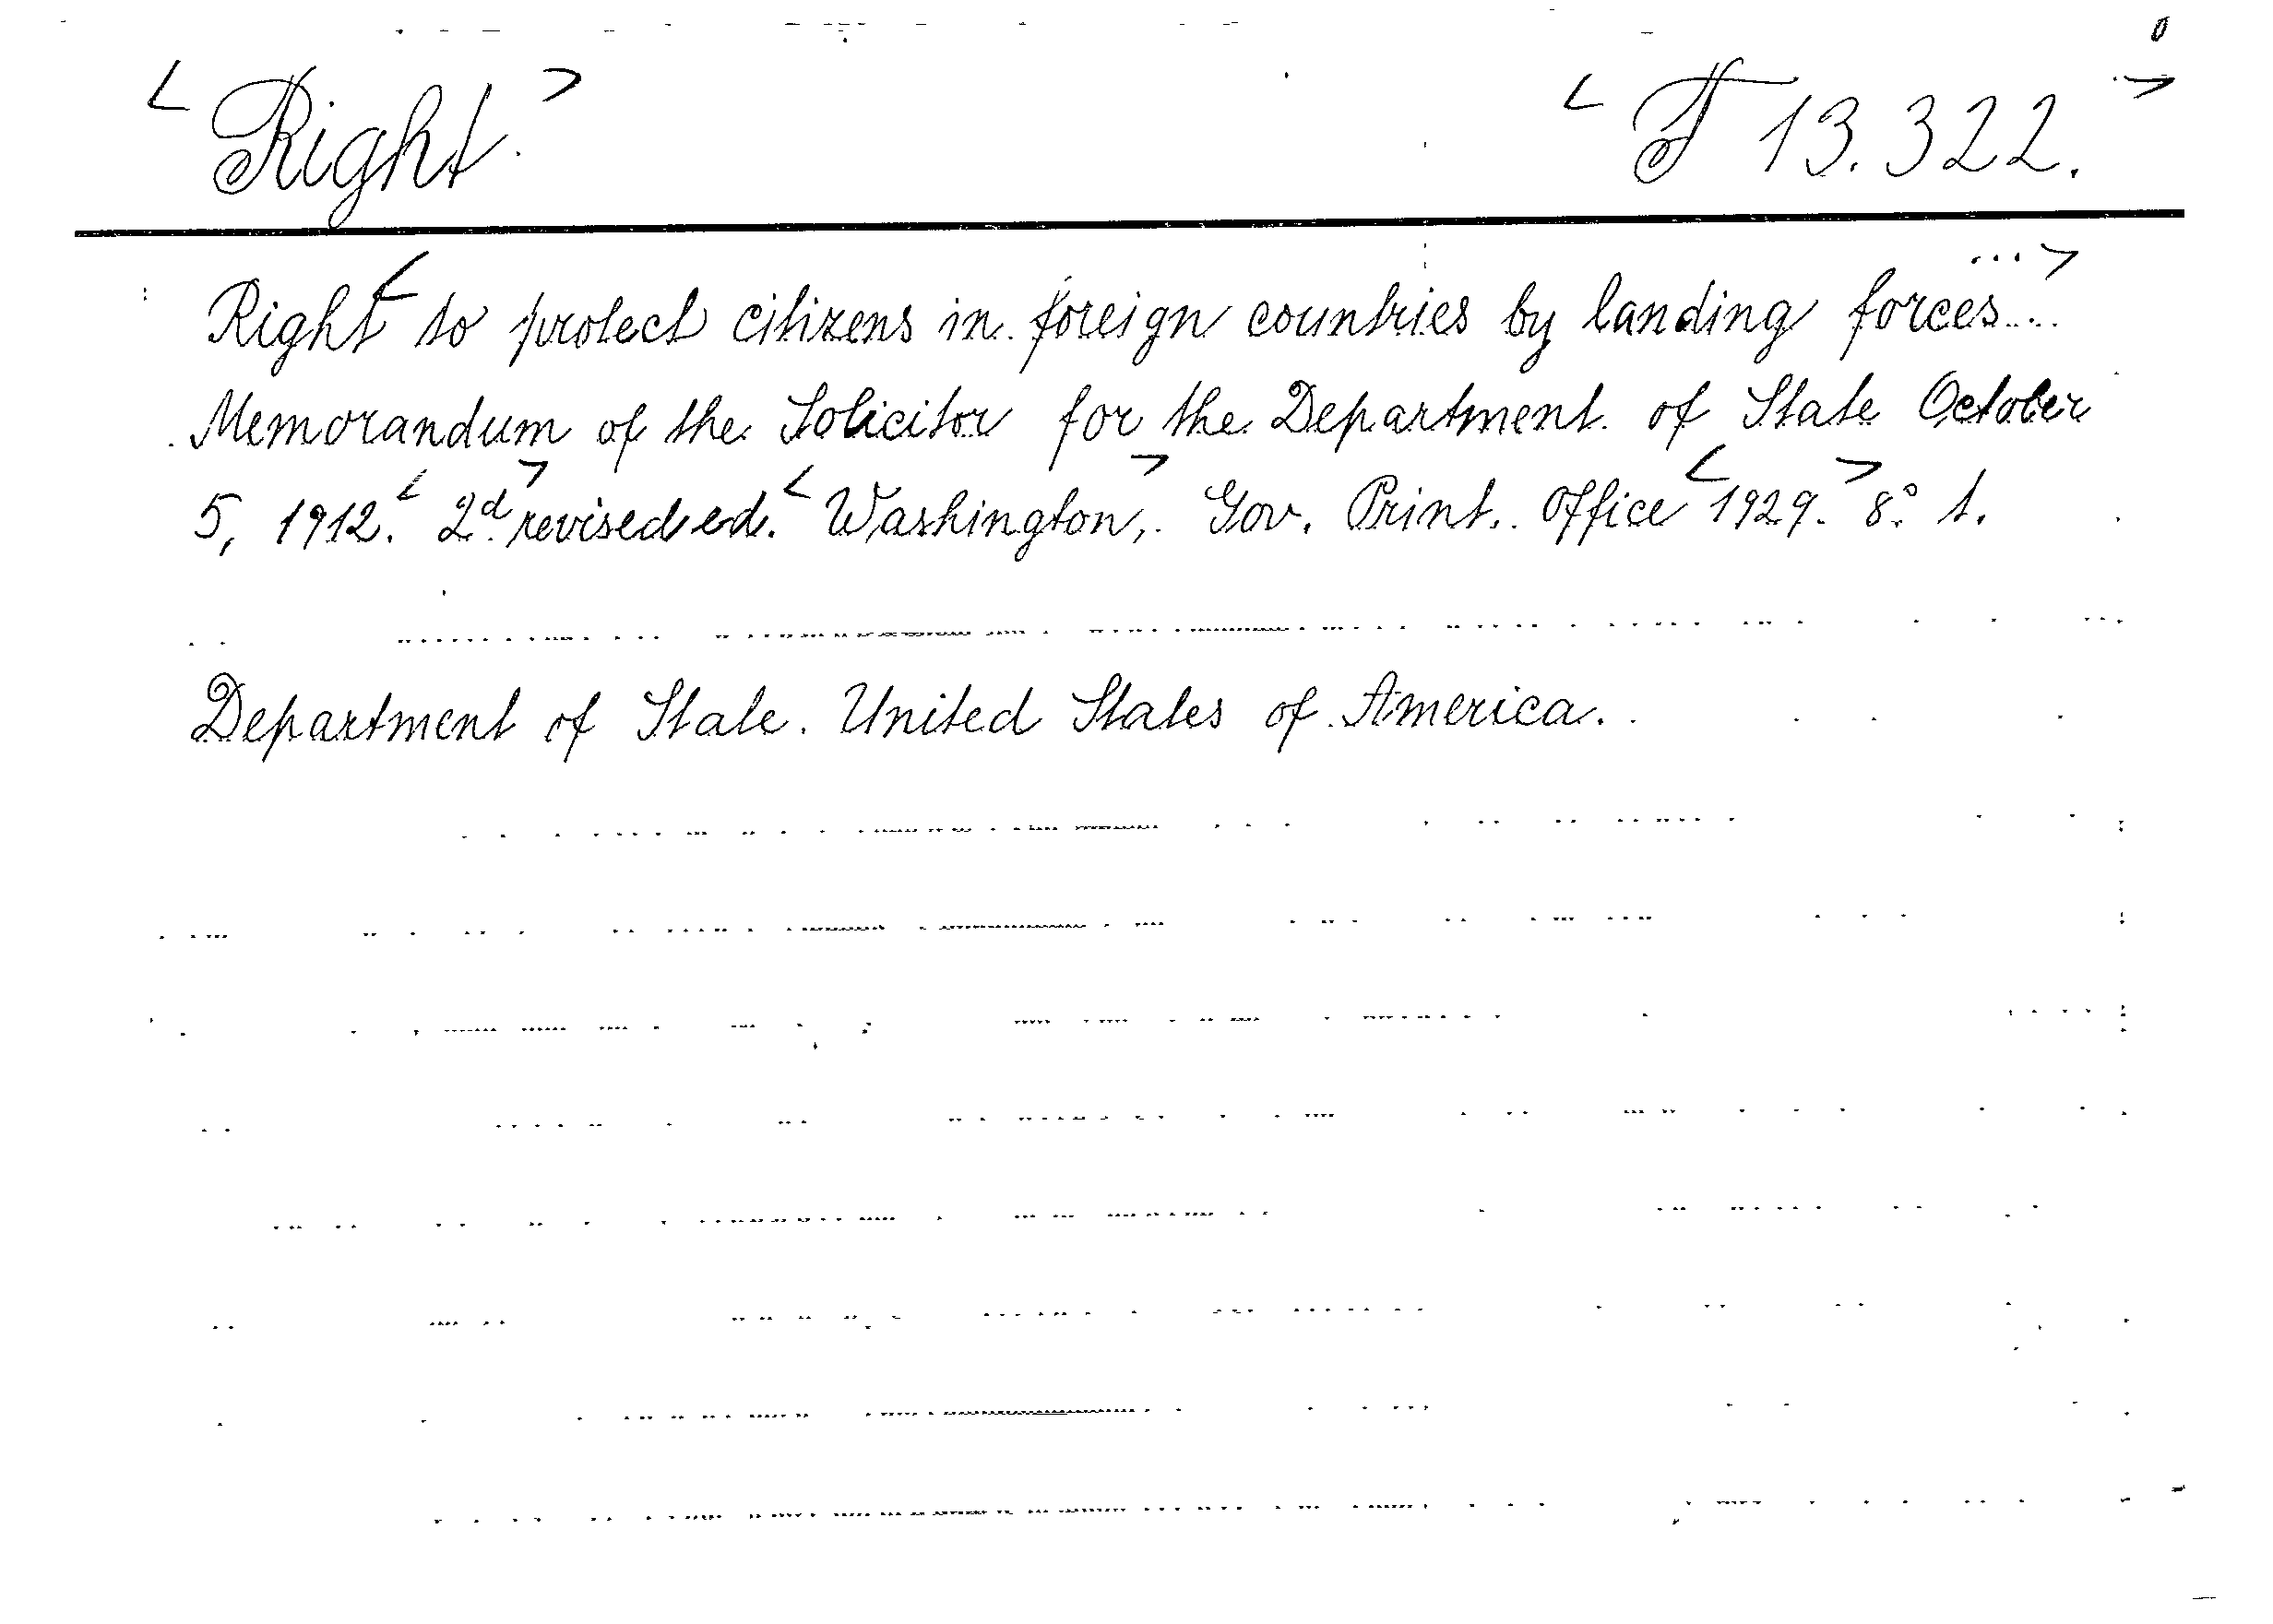 < Right. > < T 13.322. >
Right < to protect citizens in foreign countries by landing forces... ...>
Memorandum of the Solicitor for the Department of State October
5, 1912. < 2d. > revised ed. < Washington, > Gov. Print. Office < 1929. > 8° 1.
Department of State. United States of America.